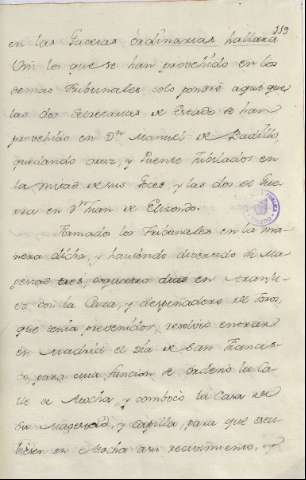 339
en las Gacetas ordinarias hallará
Vm los que se han provehido en los
demas Tribunales solo pondré aqui que
las dos Secretarias de Estado se han
provehido en Dn. Manuel de Badillo,
quedando cruz, y Puente Jubilados en
la mitad de sus Goces, y las dos de Gue
rra en Dn. Juan de Elizondo.
Formado los Tribunales en la ma
nera dicha, y haviendo divertido Su Ma
gestad tres, o quatro dias en Aranjuez
con la Caza, y despeñadero de toros,
que tenia prevenidos, resolvio entrar
en Madrid el dia de San Francis
co, para cuia funcion se ordenó la Ca
lle de Atocha, y combocó la Casa de
Su Magestad, y Capilla, para que estu
biesen en Atocha a su recivimiento.